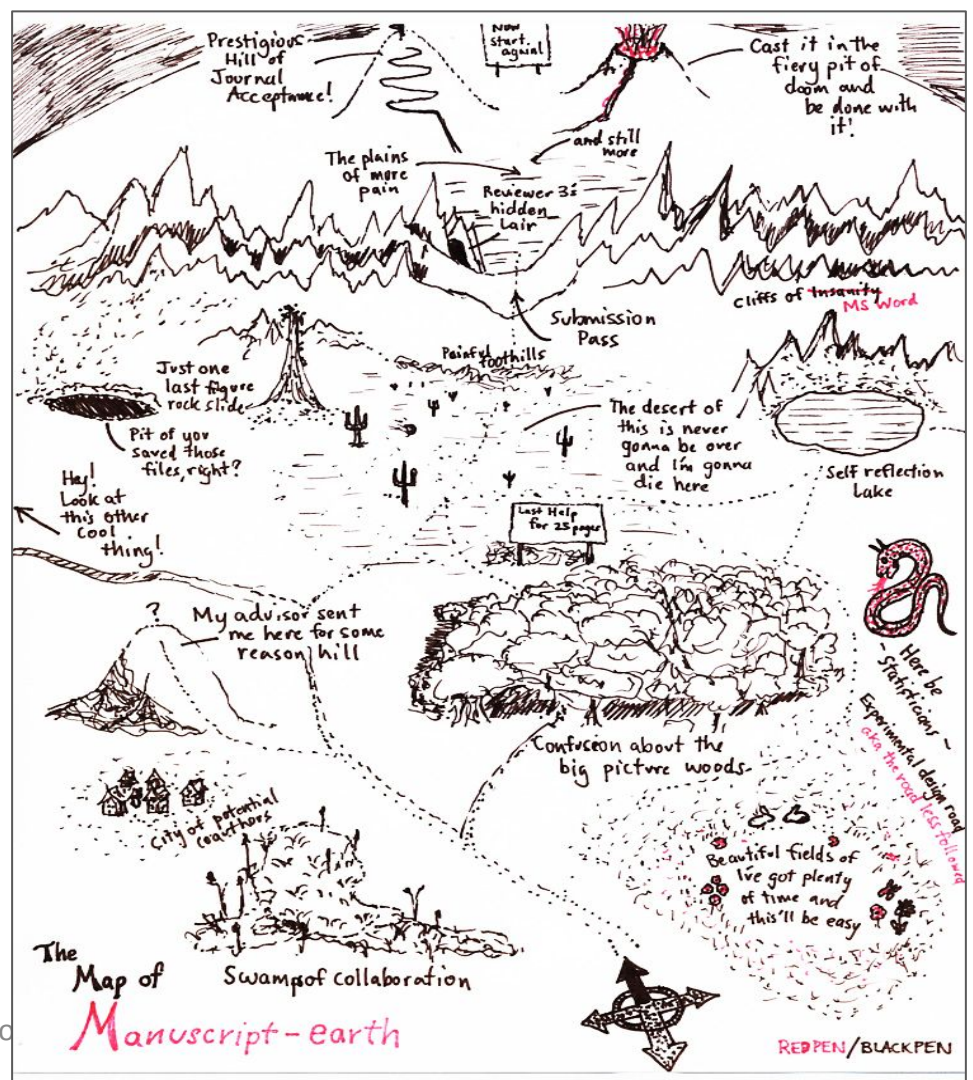 Prestigious
Hill of
Journal
Acceptance!
Now
start
again!
Cast it in the
fiery pit of
doom and
be done with
it!
The plains
of more
pain
and still
more
Reviewer 3's
hidden
lair
Cliffs of Insanity
MS Word
Submission
Pass
Painful foothills
Just one
last figure
rock slide
Pit of you
saved those
files, right?
The desert of
this is never
gonna be over
and I'm gonna
die here
Self reflection
Lake
Hey!
Look at
this other
cool
thing!
Last Help
for 25 pages
?
My advisor sent
me here for some
reason hill
Here be
-Statisticians-
Experimental design road
aka the road less followed
Confusion about the
big picture woods
City of potential
coauthors
Beautiful fields of
I've got plenty
of time and
this'll be easy
Swamps of Collaboration
The
Map of
Manuscript-earth
REDPEN/BLACKPEN